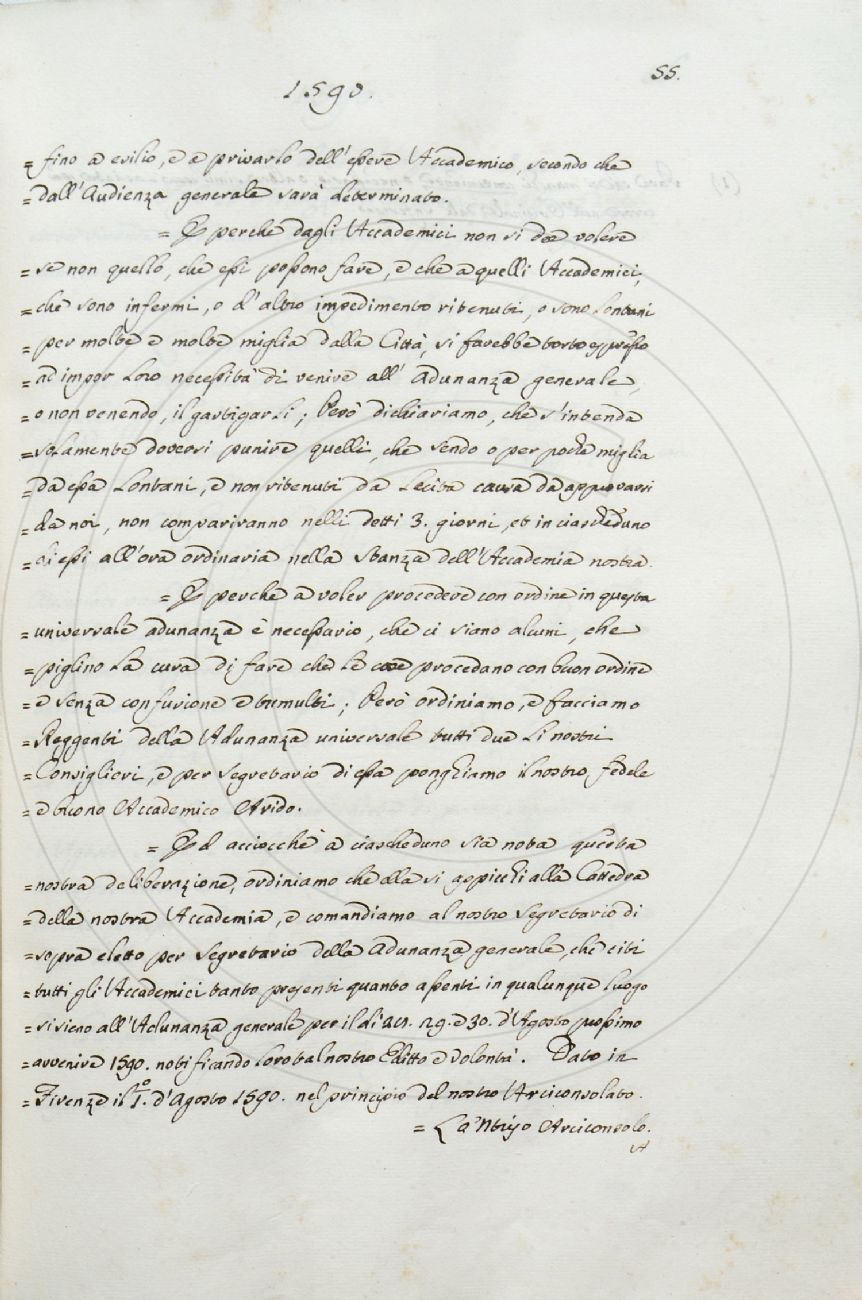 55.
1590.
= fino a esilio, e a privarlo dell'essere Accademico, secondo che
= dall'Audienza generale sarà determinato.
= E perche dagli Accademici non si dee volere
= se non quello, che essi possono fare, e che a quelli Accademici,
= che sono infermi, o d'altro impedimento ritenuti, o sono lontani
= per molte e molte miglia dalla Città, si farebbe torto espresso
= ad impor loro necessità di venire all'Adunanza generale,
= o non venendo, il gastigarli; Però dichiariamo, che s'intenda
= solamente doversi punire quelli, che sendo o per poche miglia
= da essa lontani, e non ritenuti da lecita causa da approvarsi
= da noi, non compariranno nelli detti 3. giorni, et in ciascheduno
= di essi all'ora ordinaria nella stanza dell'Accademia nostra.
= E perche a voler procedere con ordine in questa
= universale adunanza è necessario, che ci siano alcuni, che
= piglino la cura di fare che le cose procedano con buon ordine
= e senza confusione e tumulti; Però ordiniamo, e facciamo
= Reggenti della Adunanza universale tutti due li nostri
= Consiglieri, e per segretario di essa ponghiamo il nostro fedele
= e buono Accademico Arido.
= Ed acciocchè a ciascheduno sia nota questa
= nostra deliberazione, ordiniamo che ella si appicchi alla Cattedra
= della nostra Accademia, e comandiamo al nostro segretario di
= sopra eletto per segretario della Adunanza generale, che citi
= tutti gli Accademici tanto presenti quanto assenti in qualunque luogo
= si sieno all'Adunanza generale per il dì 28. 29. e 30. d'Agosto prossimo
= avvenire 1590. notificando loro tal nostro Editto e volontà. Dato in
= Firenze il 1.º d'Agosto 1590. nel principio del nostro Arciconsolato.
= La'Ntriso Arciconsolo.